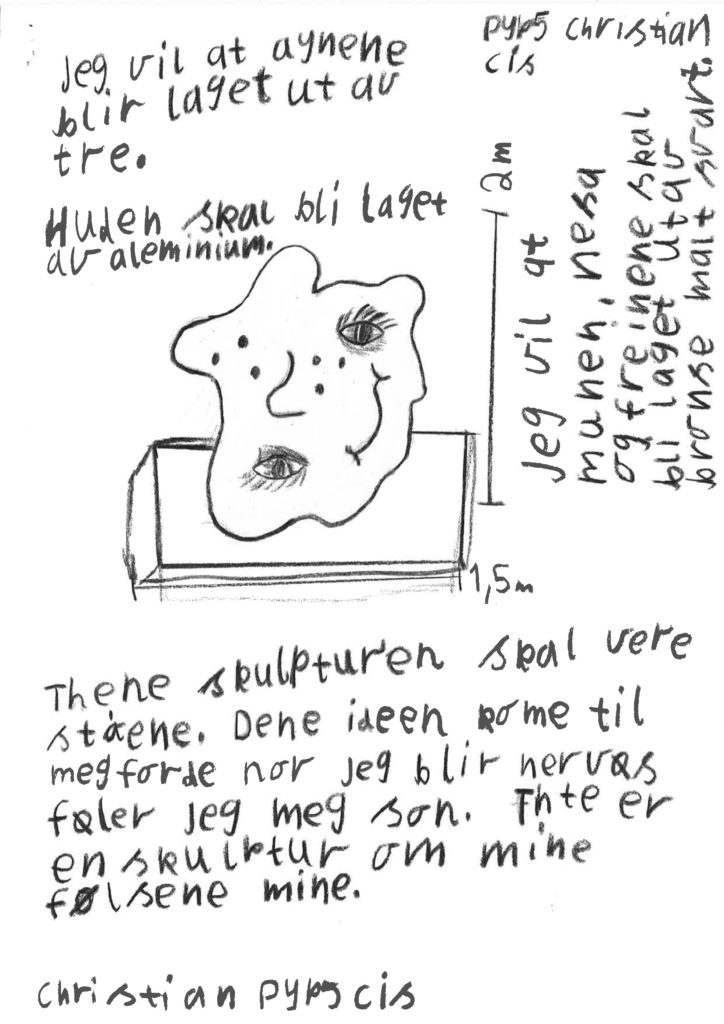 pyp5 christian
cis
Jeg vil at aynene
blir laget ut av
tre.
Huden skal bli laget
av aleminium.
2m
Jeg vil at
munen, nesa
og freinene skal
bli laget ut av
bronse malt svart.
1,5m
Thene skulpturen skal vere
ståene. Dene ideen kome til
meg forde nor jeg blir nervøs
føler jeg meg son. Thte er
en skulptur om mine
følsene mine.
christian pyp5 cis